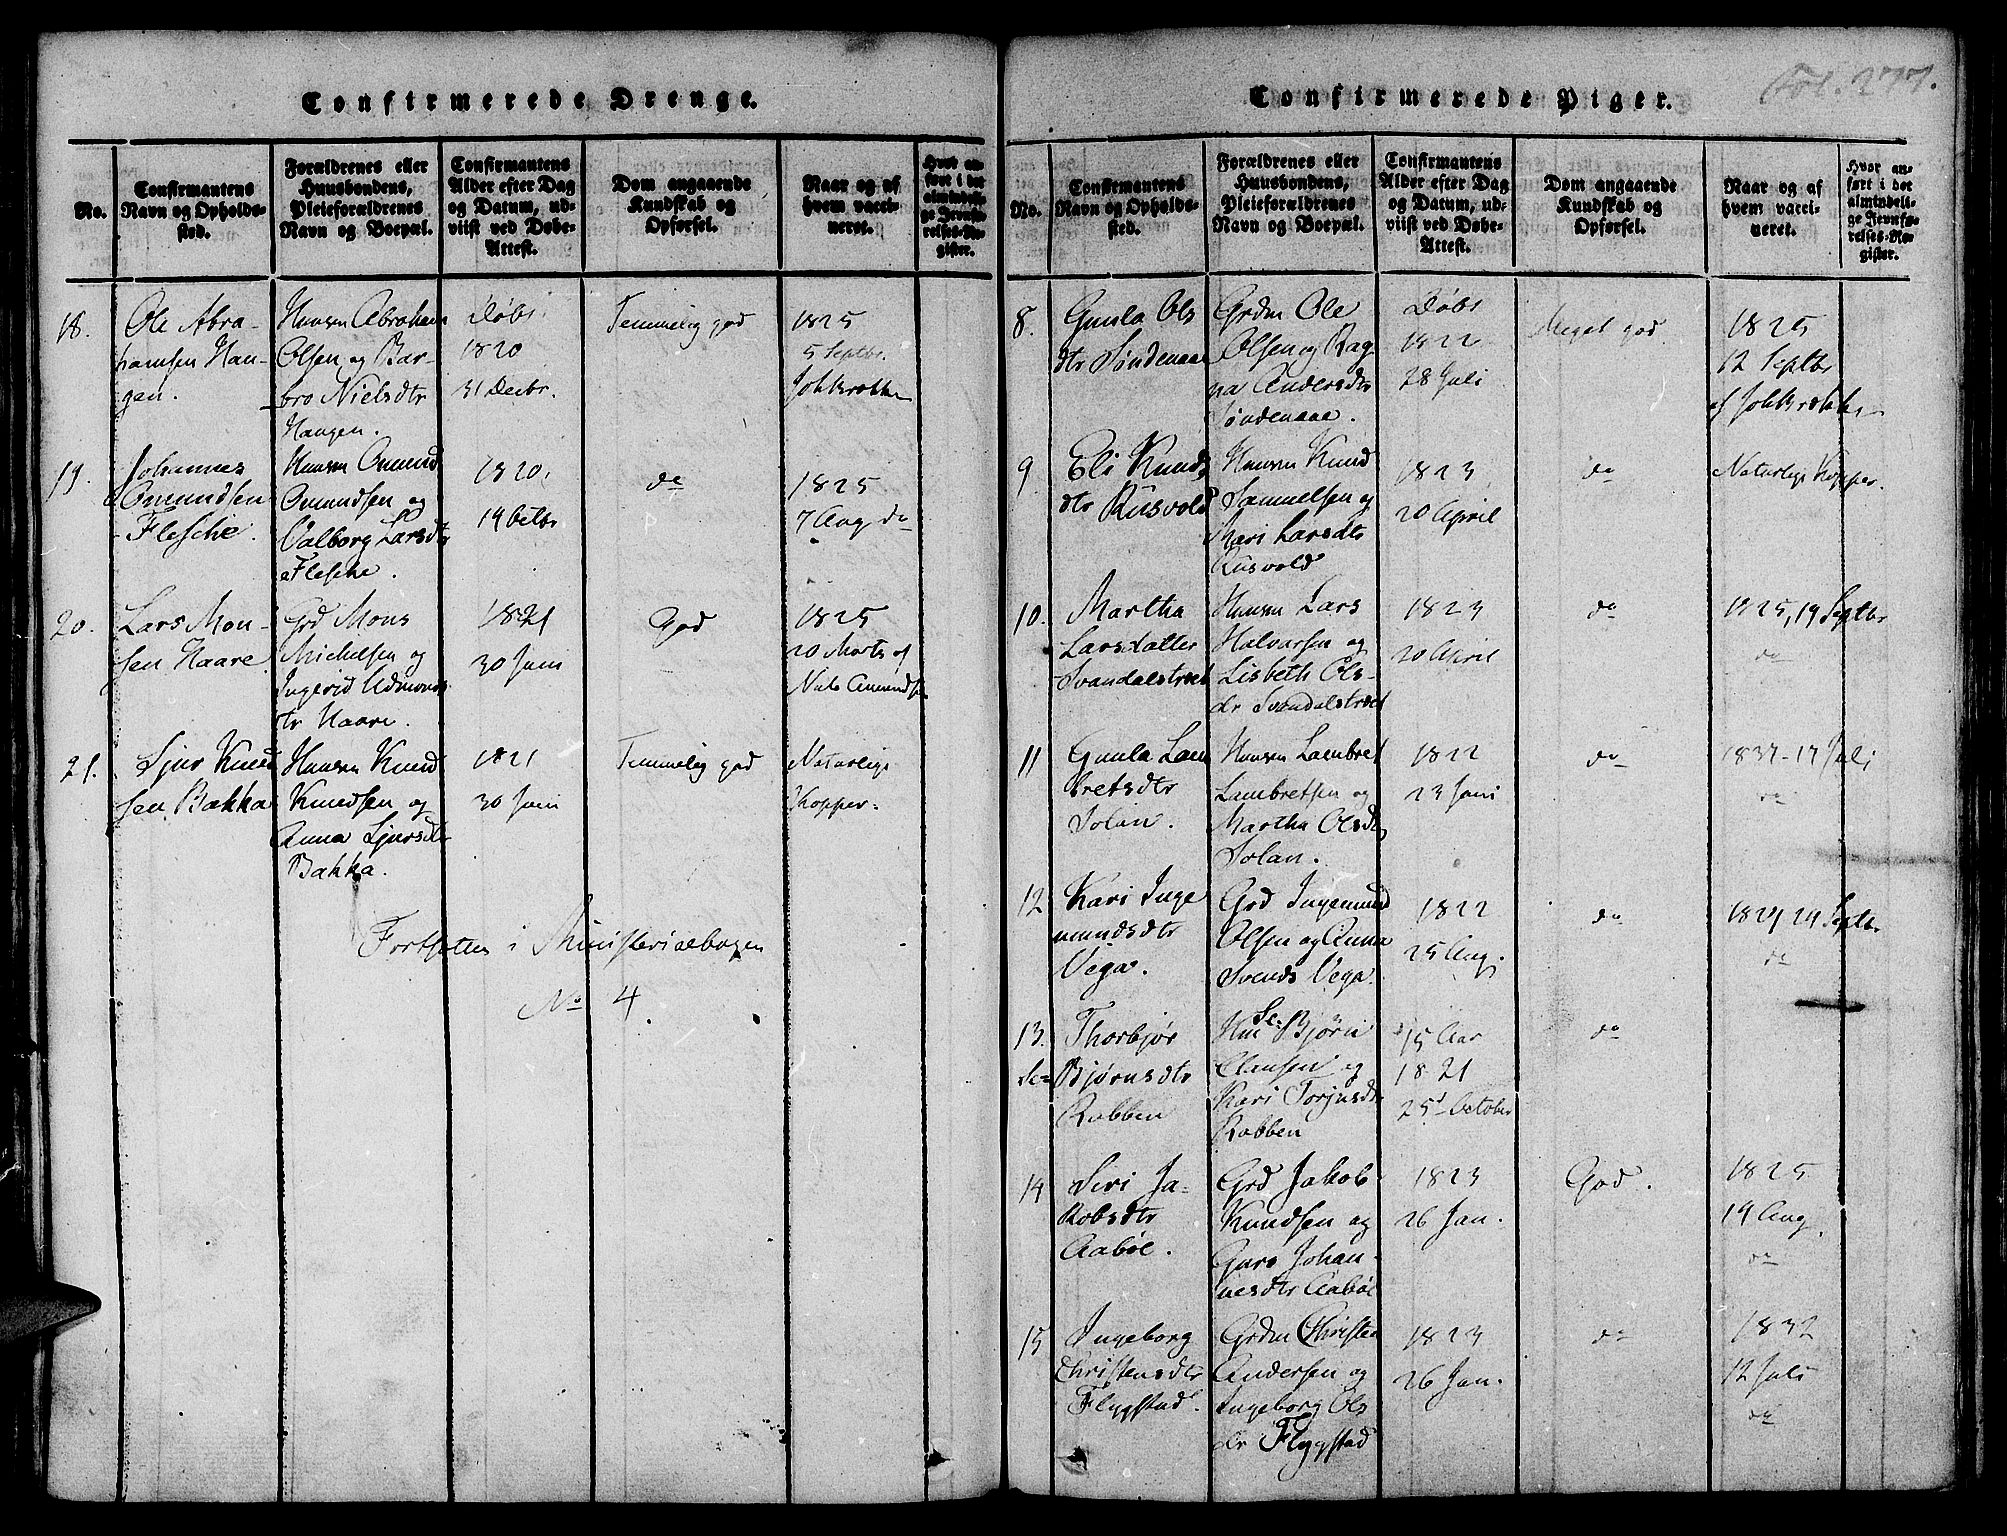 Confirmerede Drenge.
No.
Confirmantens
Navn og Opholds-
sted.
Forældrenes eller
Huusbondens,
Pleieforældrenes
Navn og Boepæl.
Confirmantens
Alder efter Dag
og Datum, ud-
viist ved Døbe-
Attest.
Dom angaaende
Kundskab og
Opførsel.
Naar og af
hvem vacci-
neret.
Hvor an-
ført i det
almindeli-
ge Jevnfø-
relses-Re-
gister.
18.
Ole Abra-
hamsen Han-
gen.
Huusm Abraham
Olsen og Bar-
bro Nielsdtr
Haugen.
Døbt
1820
31 Decbr.
Temmelig god
1825
5 Septbr.
Joh Krokken
19.
Johannes
Omundsen
Flesche.
Huusm Omund
Omundsen og
Valborg Larsdtr
Flesche.
1820,
14 Octbr
do
1825
7 Aug do
20.
Lars Mon-
sen Haare
Grd Mons
Michelsen og
Ingerid Admonds
dtr Haare.
1821
30 Juni
God
1825
20 Marts af
Niels Amunds
21.
Sjur Knud
sen Bakka
Huusm Knud
Knudsen og
Anna Sjursdtr
Bakka.
1821
30 Juni
Temmelig god
Naturlige
Kopper.
Fortsættes i Ministerialbogen
No 4.
Confirmerede Piger.
Fol. 277.
No.
Confirmantens
Navn og Opholds-
sted.
Forældrenes eller
Huusbondens,
Pleieforældrenes
Navn og Boepæl.
Confirmantens
Alder efter Dag
og Datum, ud-
viist ved Døbe-
Attest.
Dom angaaende
Kundskab og
Opførsel.
Naar og af
hvem vacci-
neret.
Hvor an-
ført i det
almindeli-
ge Jevnfø-
relses-Re-
gister.
8.
Gunla Ols
dtr Søndenaae
Grdm Ole
Olsen og Rag
na Andersdtr
Søndenaae.
Døbt
1822
28 Juli
Meget god
1825
12 Septbr
af Joh Krokken
9
Eli Knuds
dtr Rusvold
Huusm Knud
Samuelsen og
Mari Larsdtr
Rusvold
1823
20 April
do
Naturlige Kopper.
10.
Martha
Larsdatter
Svandalstræet
Huusm Lars
Halvorsen og
Lisbeth Ols-
dr Svandalstræet
1823
20 April
do
1825, 19 Septbr
do
11
Gunla Lam
bretsdtr
Solan.
Huusm Lambret
Lambretsen og
Martha Olsdtr
Solan.
1822
23 Juni
do
1837-17 Juli
do
12
Kari Inge
mundsdtr
Vega.
Grd Ingemund
Olsen og Anna
Svends Vega.
1822
25 Aug.
do
1829 24 Septbr
do
13.
Thorbjør
Bjørnsdtr
Rabben
Huu Bjørn
Clausen og
Kari Torjusdtr
Rabben
15 Aar
1821
25 October
do
14
Siri Ja-
kobsdtr
Aabøe.
Grd Jakob
Knudsen og
Guro Johan-
nesdtr Aabøe
1823
26 Jan.
God.
1825
19 Aug.
do
15
Ingeborg
Christensdtr
Flygstad.
Grdm Christen
Andersen og
Ingeborg Ols
dr Flygstad
1823
26 Jan.
do
1832
12 Juli
do